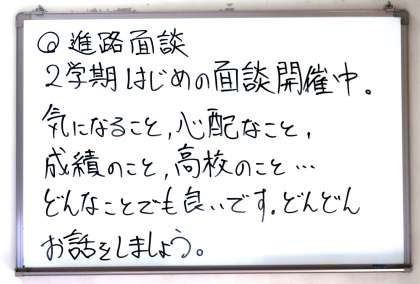 ◎進路面談
2学期はじめの面談開催中。
気になること,心配なこと,
成績のこと,高校のこと…
どんなことでも良いです.どんどん
お話をしましょう。